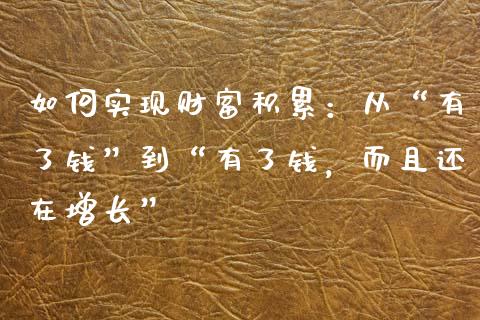 如何实现财富积累：从“有
了钱”到“有了钱，而且还
在增长”